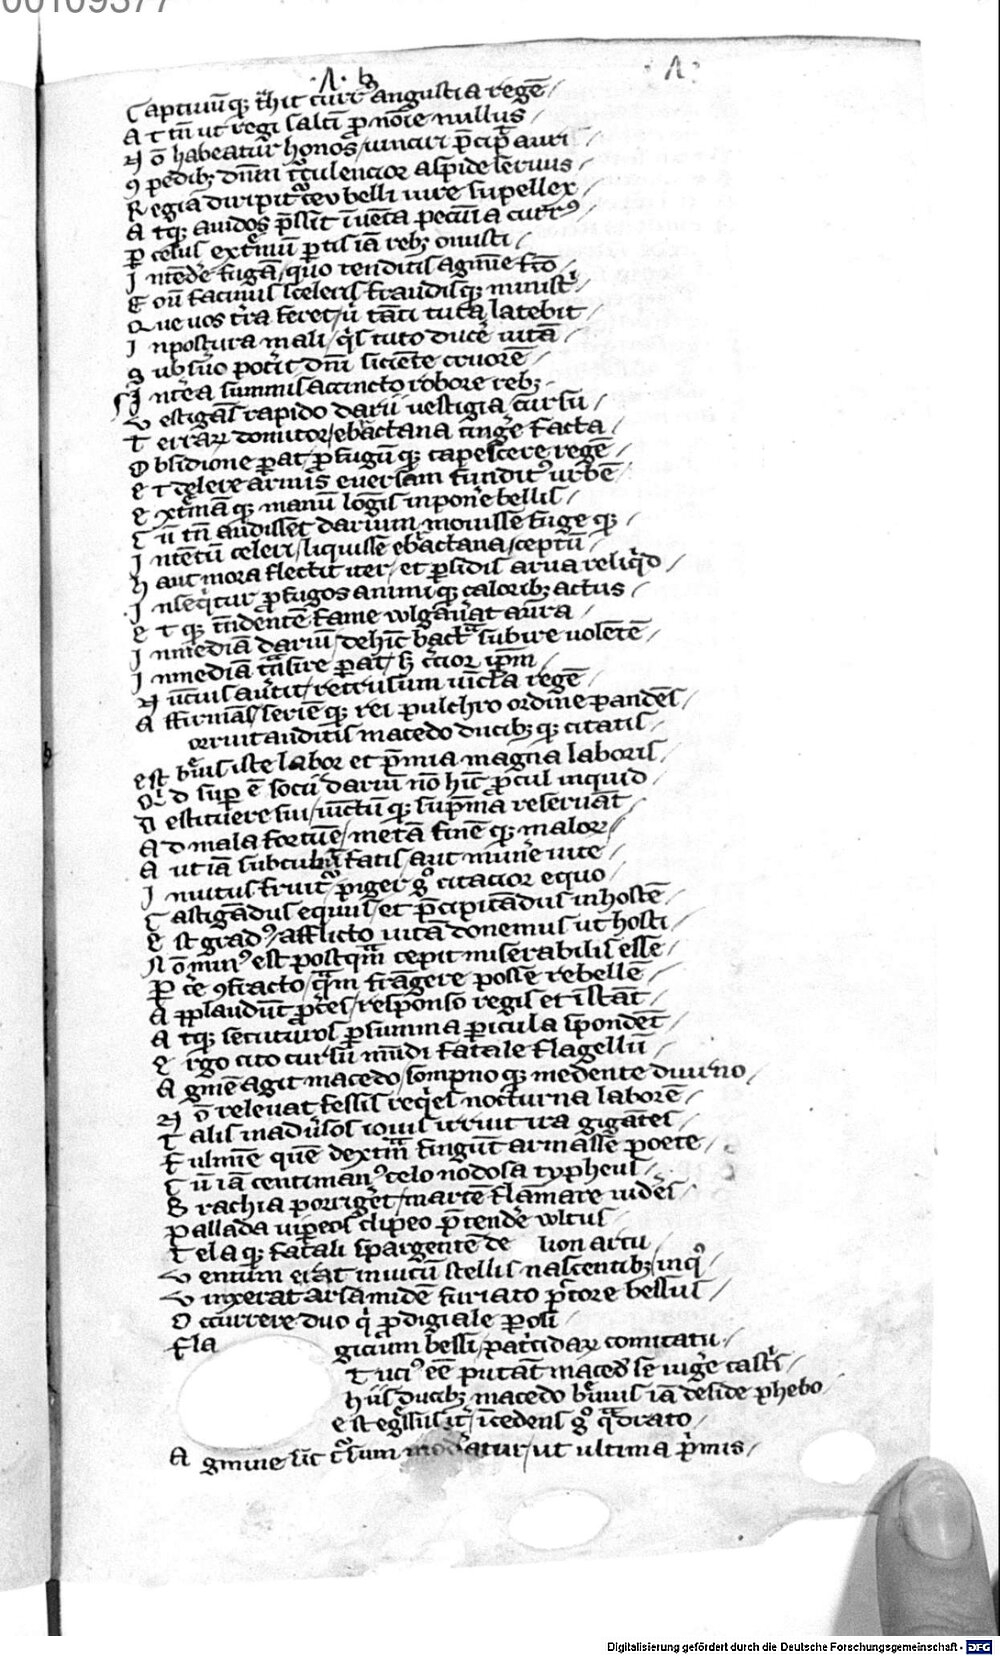 00109377
Captiuū q; tͬhit currꝰ angustia regē /
A t tn̄ ut regi saltī ꝓ noīe nullus /
N ō habeatur honos / uinciri p̄cipit auri
ꝯ pedib; dn̄m tͬculencior aspide seruus /
R egia diripit ceu belli iure supellex /
A tq; auidos p̄ssit īuēta pecūia currꝰ /
P celsis extͥmū ꝑtis iā reb; onusti /
I ntēde fugā / quo tenditis agmīe fcō /
E oū facinus sceleris fraudisq; ministͥ /
Q ue uos tr̄a feret / ū tāti tuta latebit /
I npostura mali / qͥs tuto ducē uitā /
S ub suo potit dn̄i sicīete cruorē /
I nt̄ea summis accincto robore reb; /
V estigās rapido darii uestigia cursu /
T errarꝝ domitor / ebactana cinḡe facta /
O bsidione parat / ꝓfugū q; capescere regē /
E t delere armis euersam funditꝰ urbē /
E xtͥmā q; manū lōgis inpon̄e bellis /
C ū tn̄ audisset darium mouisse fuge q; /
I ntētū celeri / liquisse ebactana sceptū /
H aut mora flectit iter / et ꝑsidis arua reliqͥd /
I nseqͥtur ꝓfugos animi q; calorib; actus /
E t q; tn̄dentē fame uulgauāt aura /
I n mediā dariū / dehīc bactͣ subire uolētē /
I n mediā tͣnsire parat / s; cͨior ip̄m /
N ūcius aūtit / retrusum uīcla regē /
A ffirmās / seriē q; rei pulchro ordine pandēs /
orruit auditis macedo ducib; q; citatis /
est bͬuis iste labor et p̄mia magna laboris /
Qͥ d suꝑ ē socii dariū nō hīc ꝓcul inquid /
D estituere sui / uīctū q; suꝑma reseruāt /
A d mala fortūe / metā finē q; malorꝝ /
A ut iā subcubuit fatis / aut mūne uite /
I nuitus fruitͬ / piger gͦ citacior equo /
C astigādus equus / et p̄cipitādus in hostē /
E st gradꝰ / afflicto uitā donemus ut hosti /
N ō minꝰ est postqͣm cepit miserabilis esse /
P c̄e ꝯfracto / qͣm frāgere posse rebellē /
A pplaudūt ꝓc̄es / responso regis et īstāt /
A tq; secuturos ꝑ summa ꝑicula spondēt /
E rgo cito cursu mūdi fatale flagellū
A gmē agit macedo / sompno q; medente diurno /
N ō releuat fessis reqͥes nocturna laborē /
T alis in aduͥsos iouis irruit ira gigātes /
F ulmīe quē dextͣm fingūt armasse poete /
C ū iā centimanꝰ celo nodosa typheus /
B rachia porriḡet / martē flāmare uidēs /
P allada uiꝑeos clipeo p̄tenḋe uultus /
T ela q; fatali spargentē de lion arcu /
V entum erat inuictū stellis nascentib; inqͦ /
V inxerat arsamidē furiato pͨtore bessus /
O ccurrere duo qͥ ꝓdigiale ꝑosi
Fla gicium bessi / pat̄cidarꝝ comitatū /
T ucͥ ee putāt macedͦ se iuḡe castͥs /
h iis ducib; macedo bͬuius iā deside phebo /
est eg̅ssus itͬ / īcedens gͦ qͣdrato /
A gmīe sic cͬsum modatur / ut ultima pͥmis /
Digitalisierung gefördert durch die Deutsche Forschungsgemeinschaft - DFG